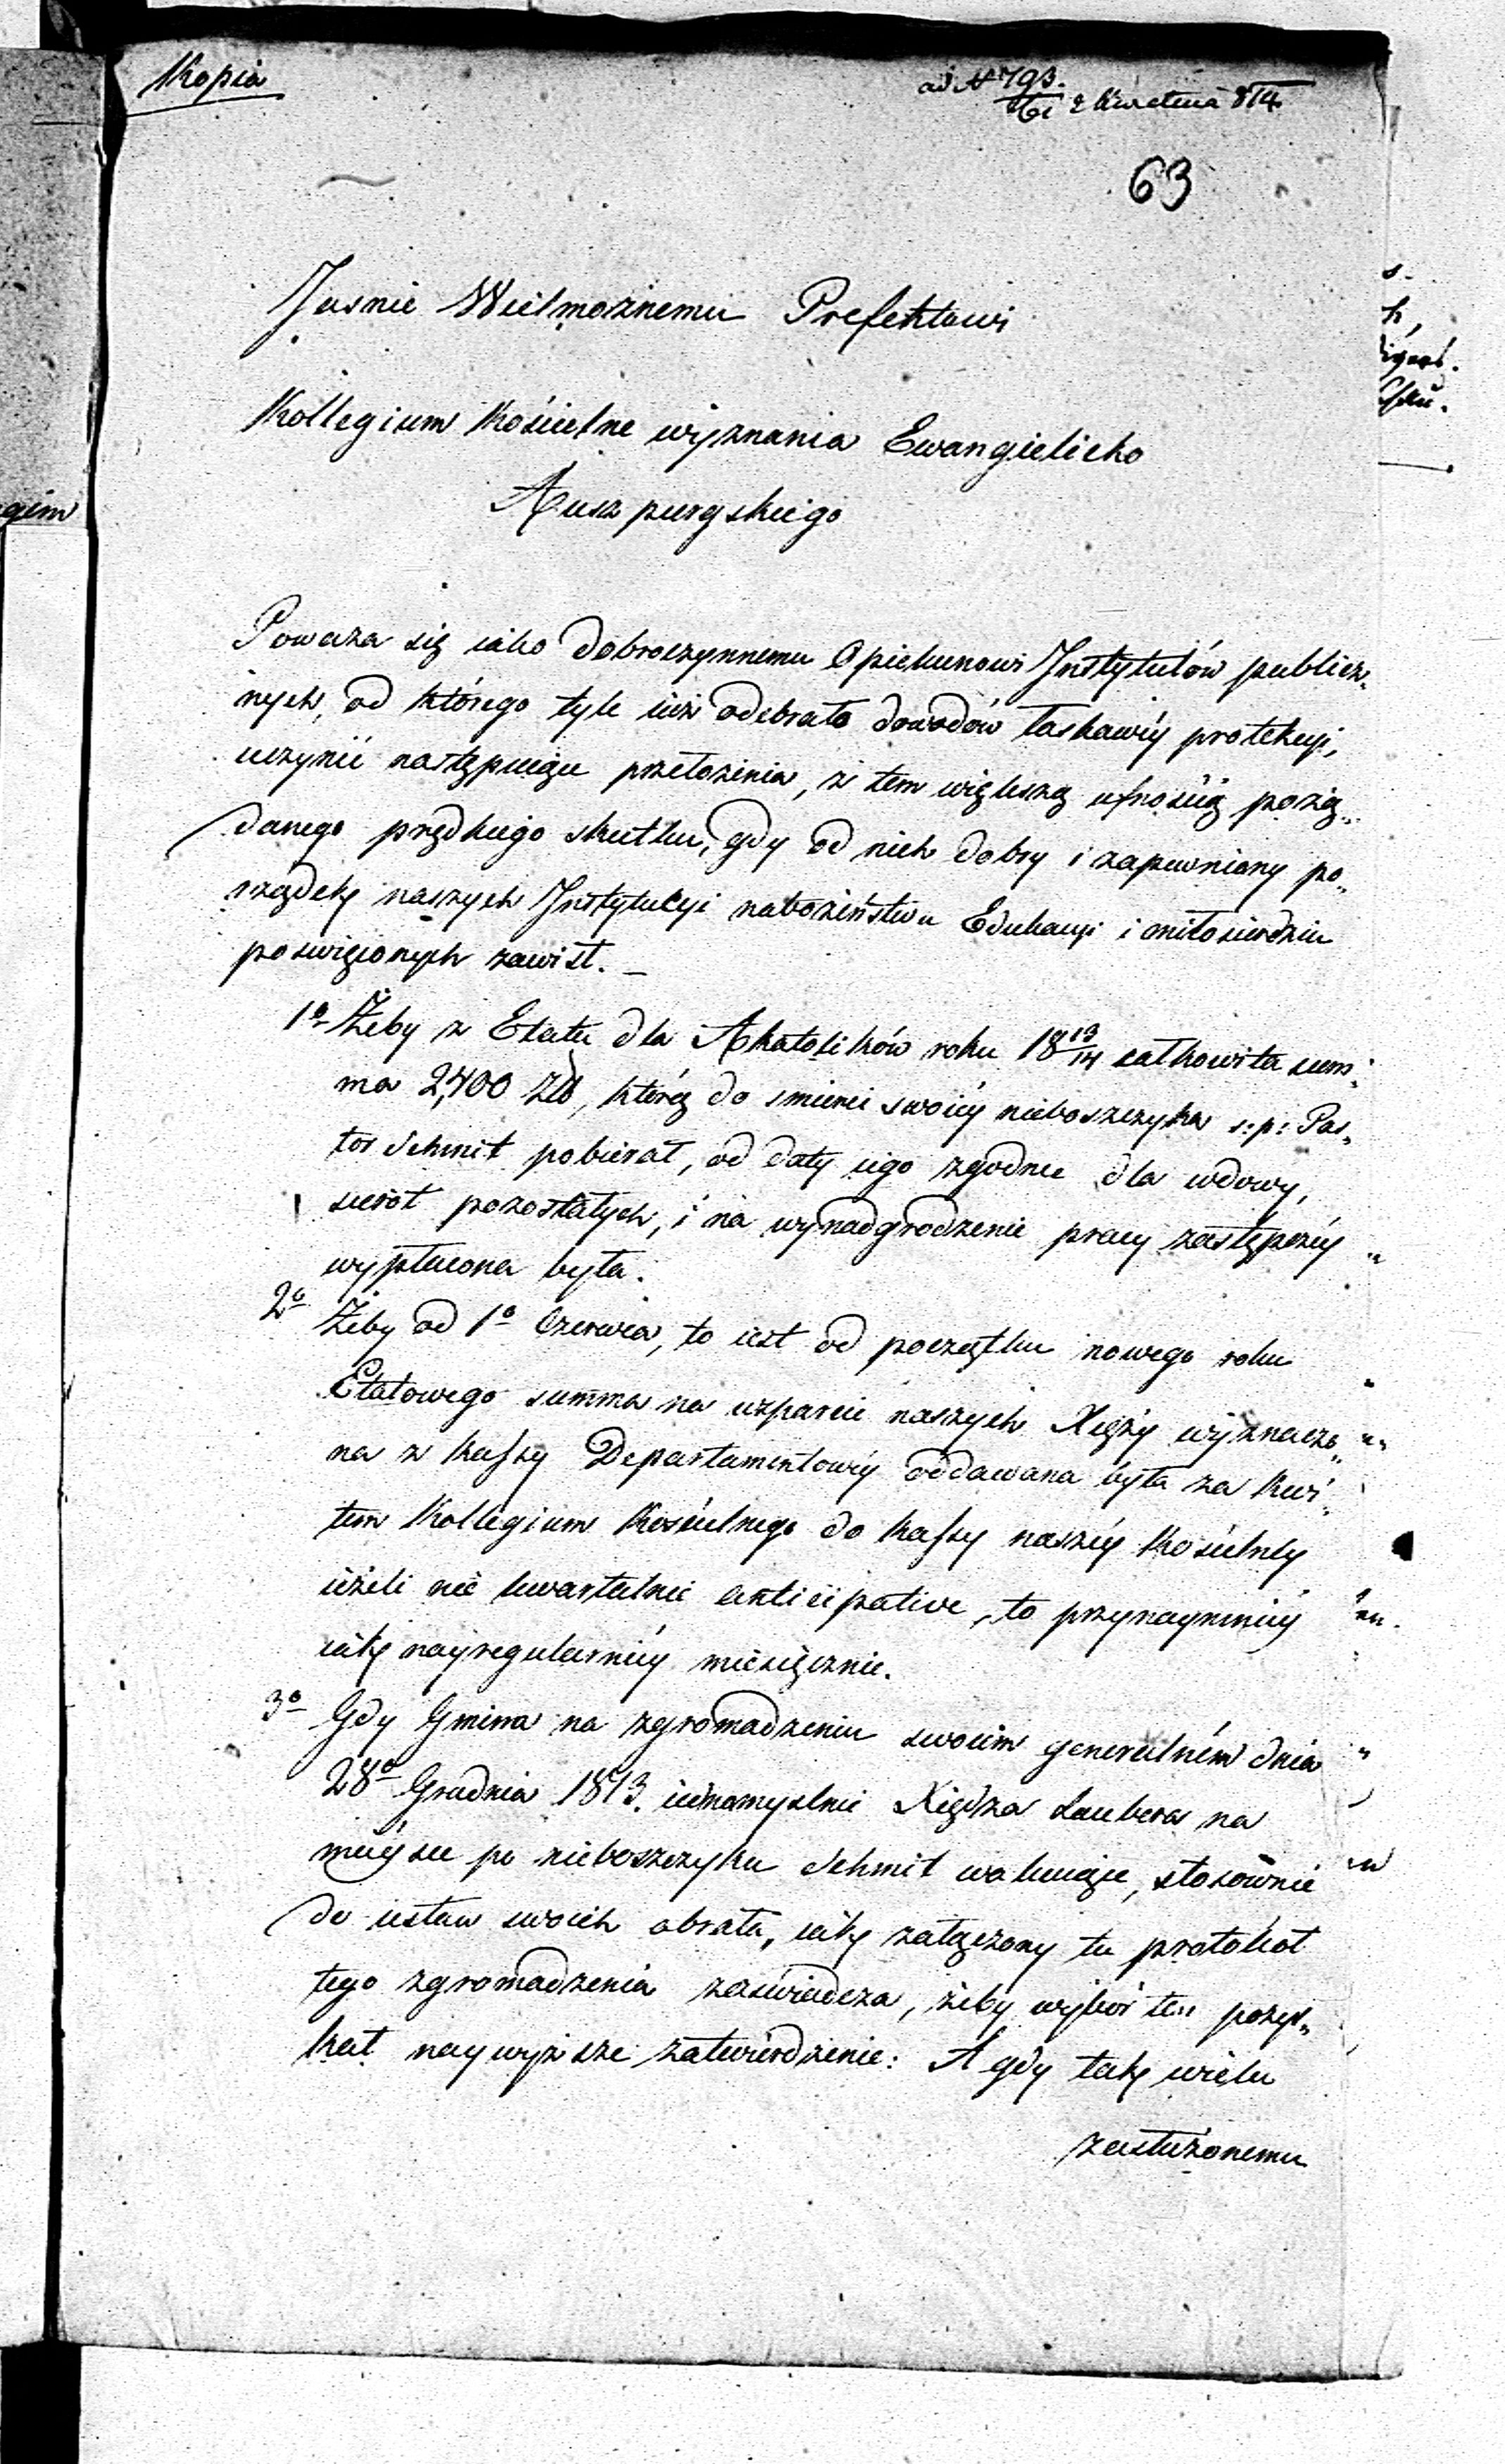 Kopia
ad N 793.
2 Kwietnia 814
63
Jasnie Wielmożnemu Prefektowi
Kollegium Kościelne wyznania Ewangielicko
Auszpurgskiego
Poważa się iako Dobroczynnemu Opiekunowi Instytutów publicz„
nych, od którego tyle iuż odebrało dowodów łaskawéy protekcyi,
uczynić następuiące przełożenia, z tem większą ufnością pożą„
danego prędkiego skutku, gdy od nich dobry i zapewniony po„
rządek naszych Instytucyi nabożeństwu Edukacyi i miłosierdziu
poswięconych zawisł. _
1º Żeby z Etatu dla Akatolików roku 18 13/14 całkowita sum„
ma 2,400 Złł, którą do smierci swoiéy nieboszczyk s: p: Pas„
tor Schmit pobierał, od daty iego zgodnie dla wdowy,
sierot pozostałych, i na wynadgrodzenie pracy zastępczéy
wypłacona była.
2º Żeby od 1º Czerwca, to iest od początku nowego roku
Etatowego summa na wsparcie naszych Xięży wyznaczo„
na z kassy Departamentowéy oddawana była za kwi„
tem Kollegium Kościelnego do kassy naszéy Kościelnéy
ieżeli nie kwartalnie anticipative, to przynaymniéy
iak nayregularniéy miesięcznie.
3º Gdy Gmina na zgromadzeniu swoim generalném dnia
28º Grudnia 1813. iednomyslnie Xiędza Laubera na
mieysce po nieboszczyku Schmit wakuiące, stosownie
do ustaw swoich obrała, iak załączony tu protokół
tego zgromadzenia zaświadcza, żeby wybór ten pozys„
kał naywyższe zatwierdzenie: A gdy tak wielu
zasłużonemu